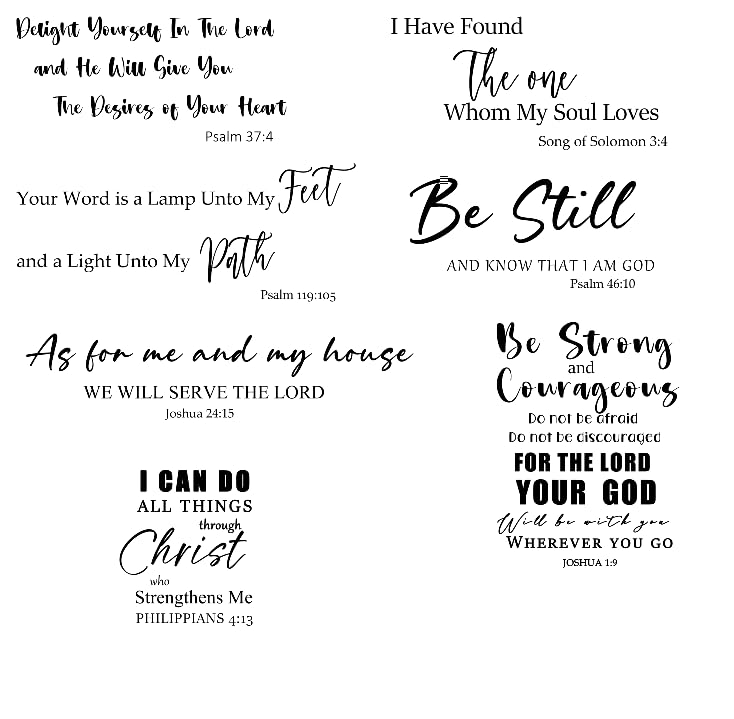 Delight Yourself In The Lord
and He Will Give You
The Desires of Your Heart
Psalm 37:4
I Have Found
The one
Whom My Soul Loves
Song of Solomon 3:4
Your Word is a Lamp Unto My Feet
and a Light Unto My Path
Psalm 119:105
Be Still
AND KNOW THAT I AM GOD
Psalm 46:10
As for me and my house
WE WILL SERVE THE LORD
Joshua 24:15
Be Strong
and
Courageous
Do not be afraid
Do not be discouraged
FOR THE LORD
YOUR GOD
Will be with you
WHEREVER YOU GO
JOSHUA 1:9
I CAN DO
ALL THINGS
through
Christ
who
Strengthens Me
PHILIPPIANS 4:13